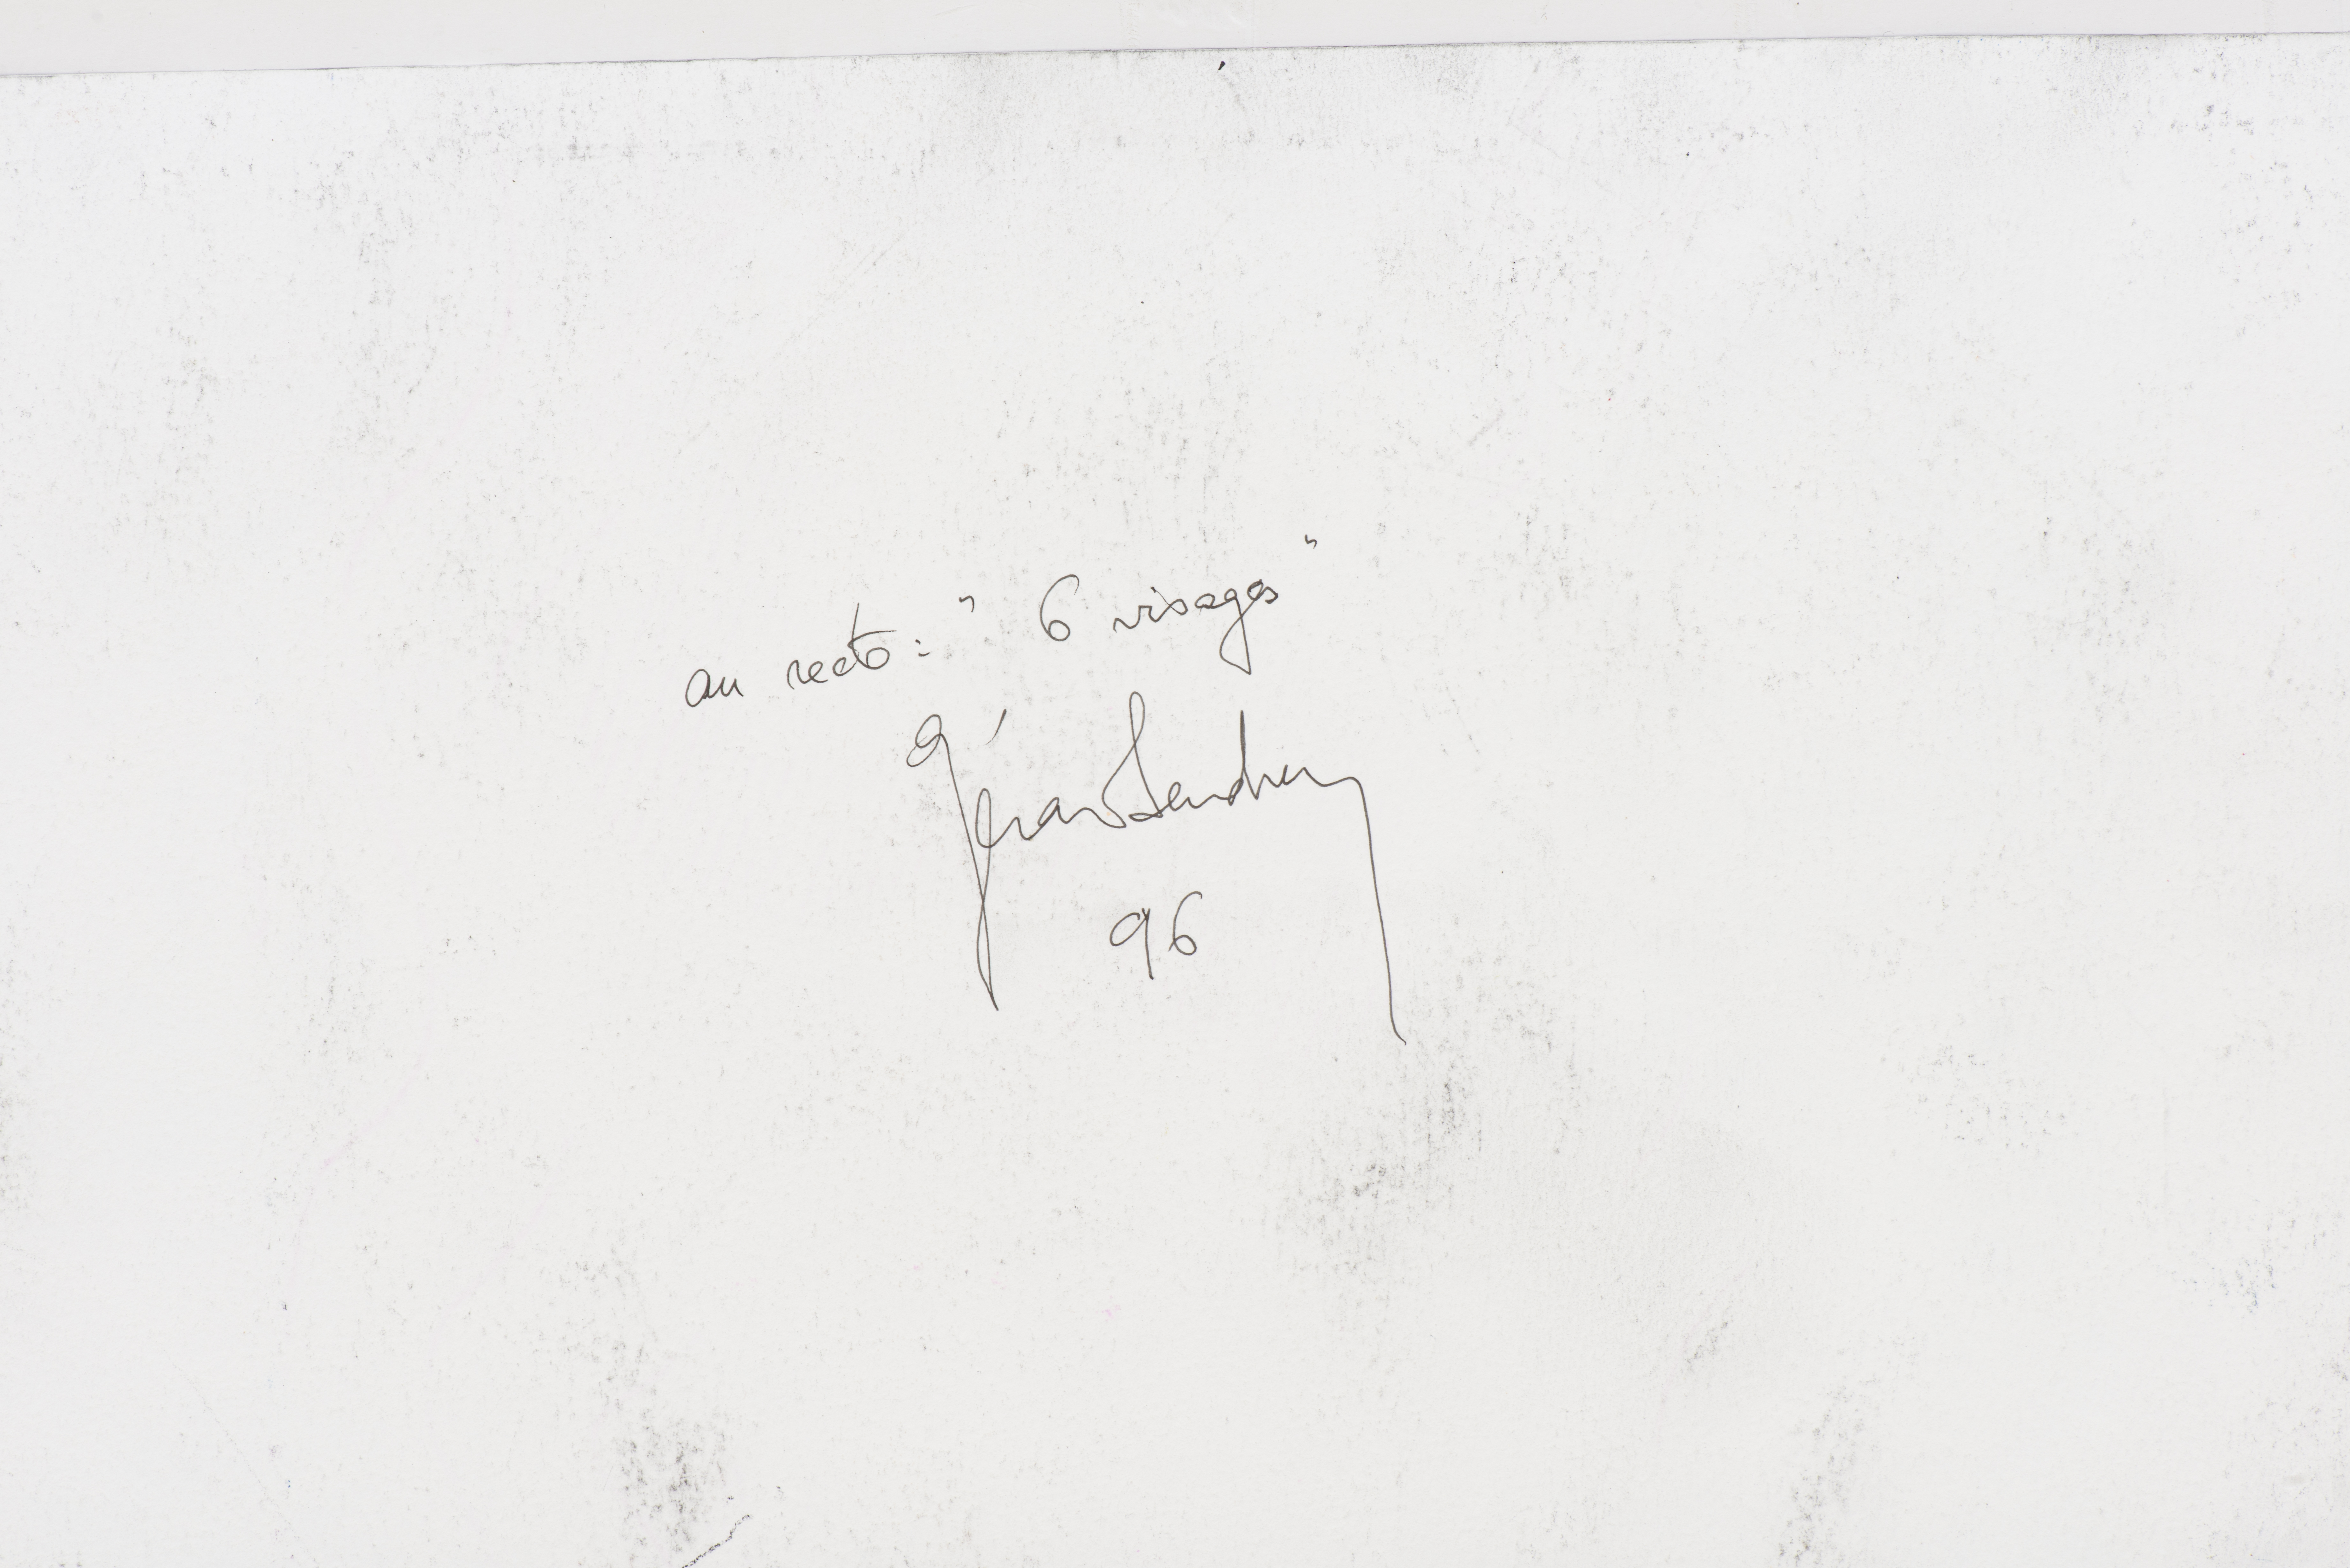 au recto : " 6 visages "
Gérard Sendrey
96